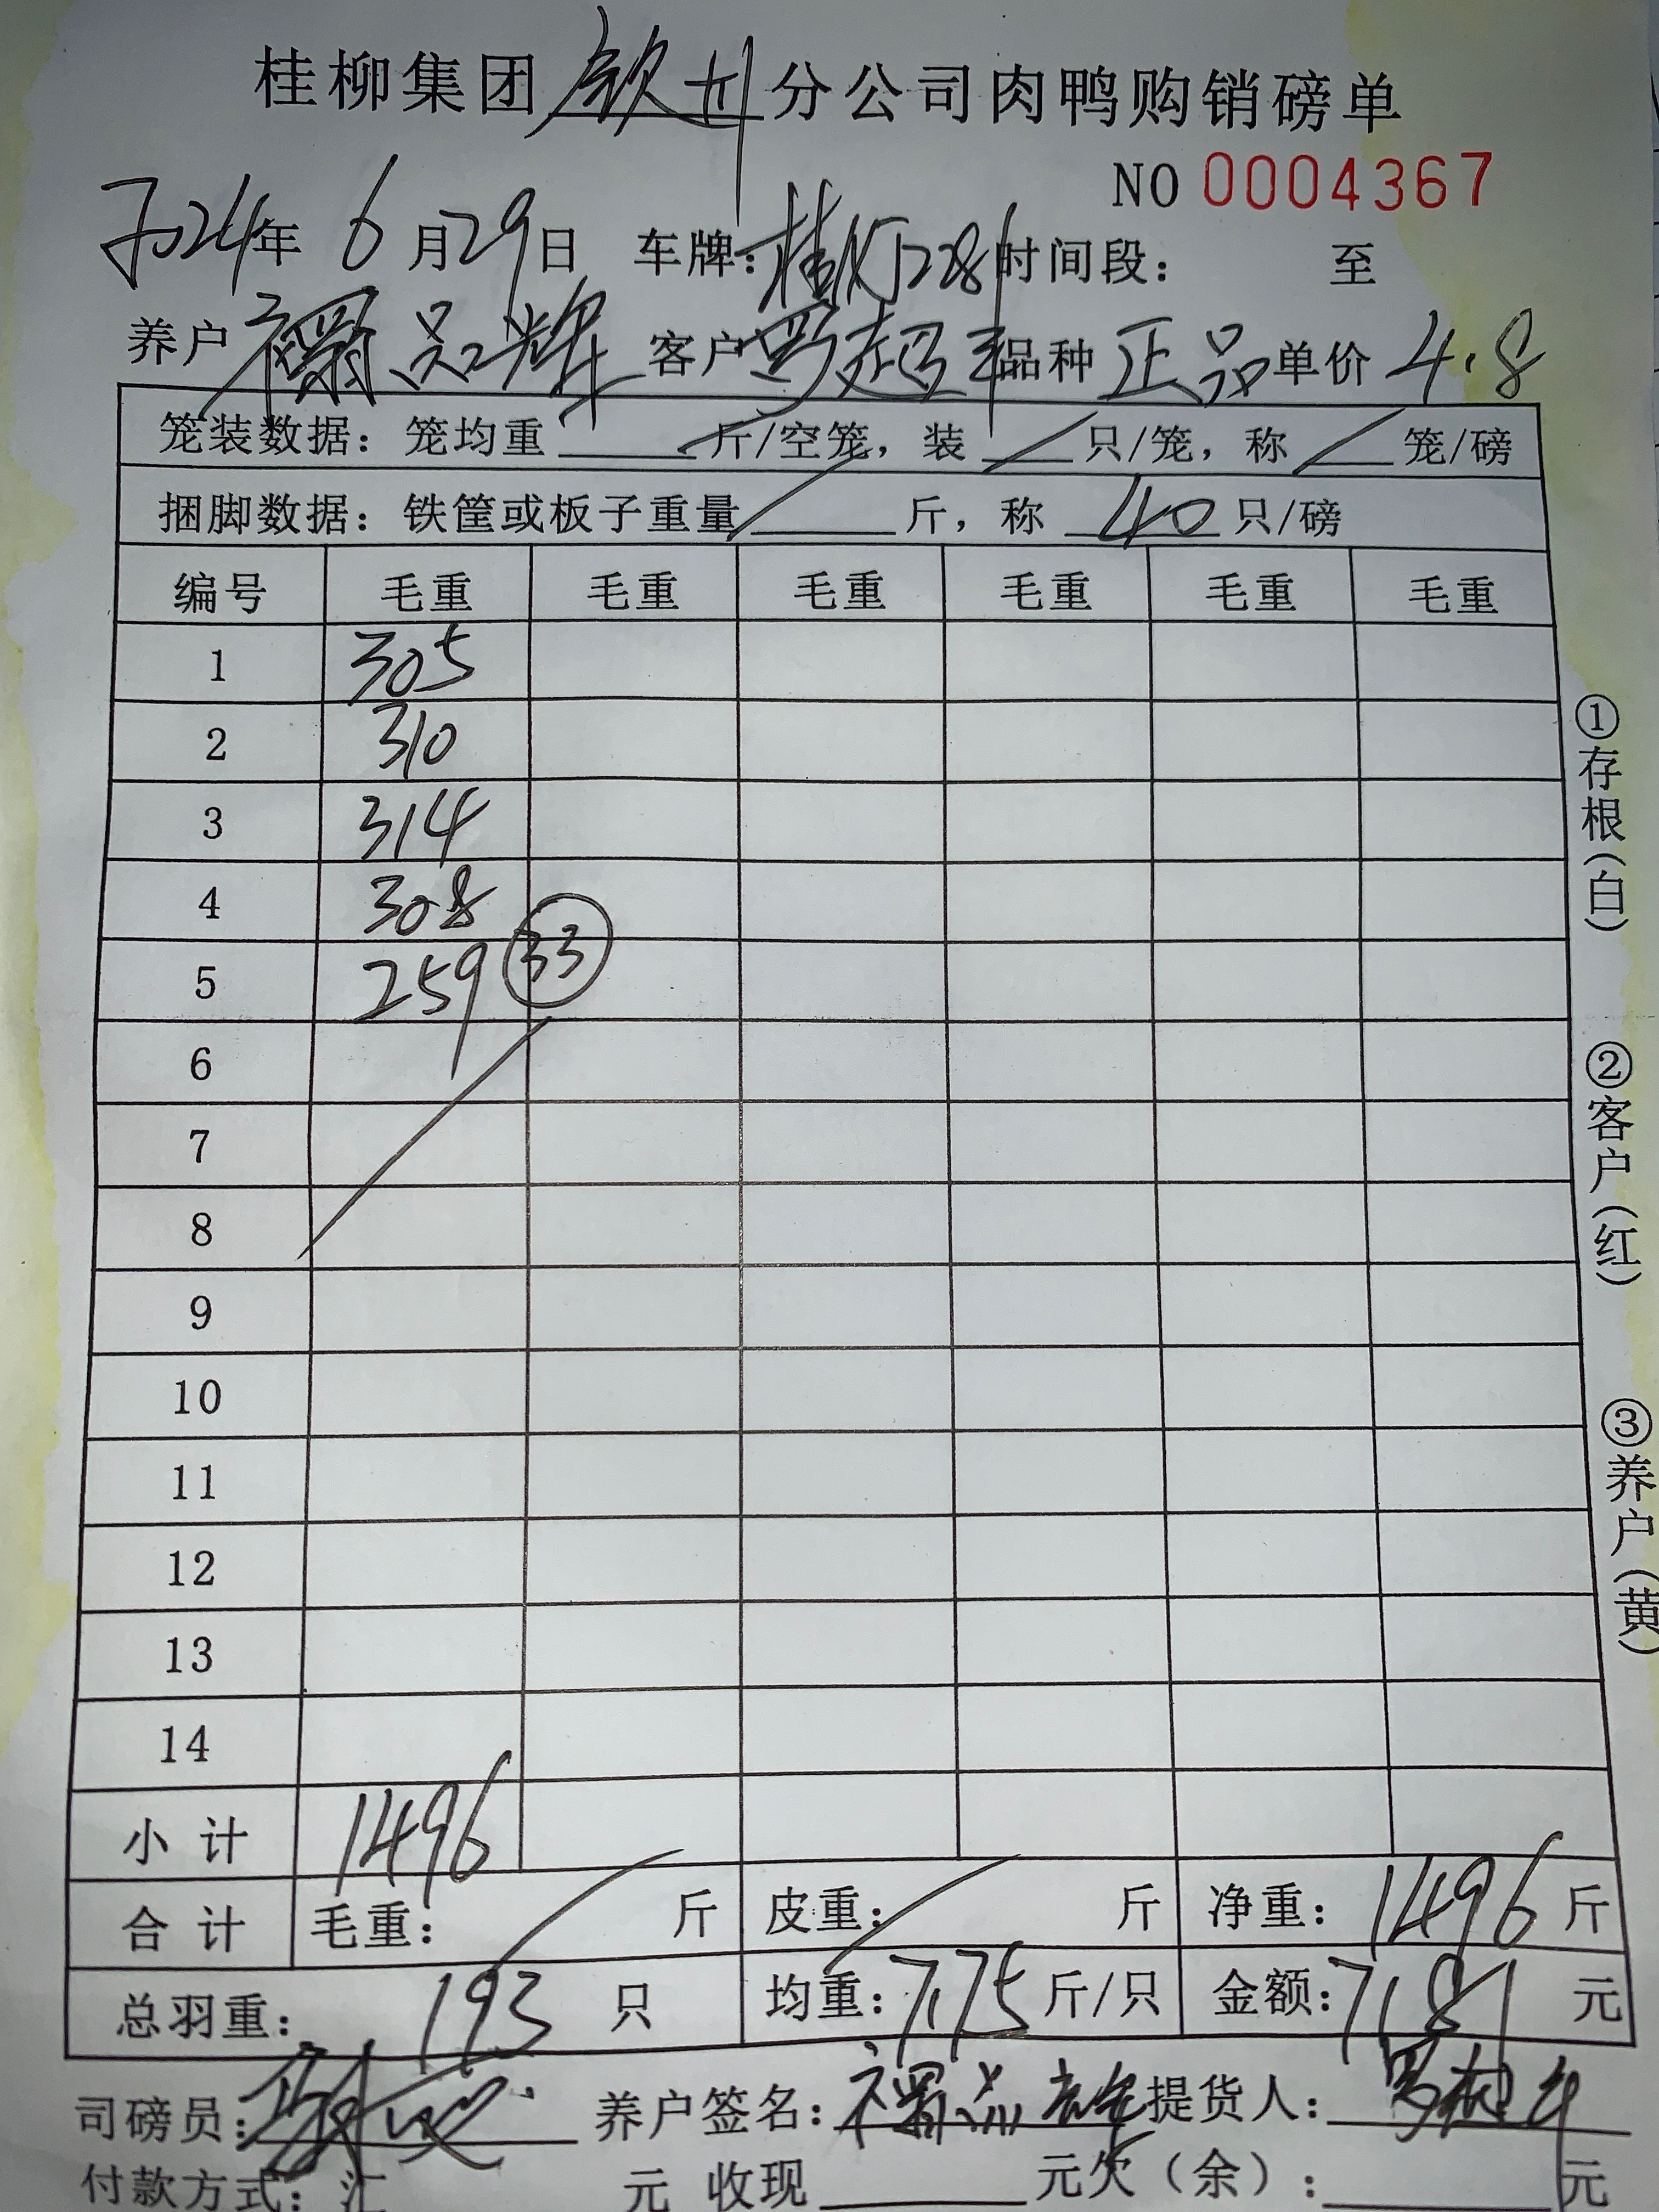 桂柳集团钦州分公司肉鸭购销磅单
NO 0004367
2024年 6月29日 车牌: 时间段: 至
养户 品 客户罗超 品种 正品 单价 4.8
笼装数据: 笼均重 斤/空笼, 装 只/笼, 称 笼/磅
捆脚数据: 铁筐或板子重量 斤, 称 40 只/磅
编号 毛重 毛重 毛重 毛重 毛重 毛重
1 305
2 310
3 314
4 308
5 259 33
6
7
8
9
10
11
12
13
14
小计 1496
合计 毛重: 斤 皮重: 斤 净重: 1496 斤
总羽重: 193 只 均重: 7.75 斤/只 金额: 7181 元
司磅员: 养户签名: 提货人:
付款方式: 汇 元 收现 元欠(余): 元
①存根(白)
②客户(红)
③养户(黄)